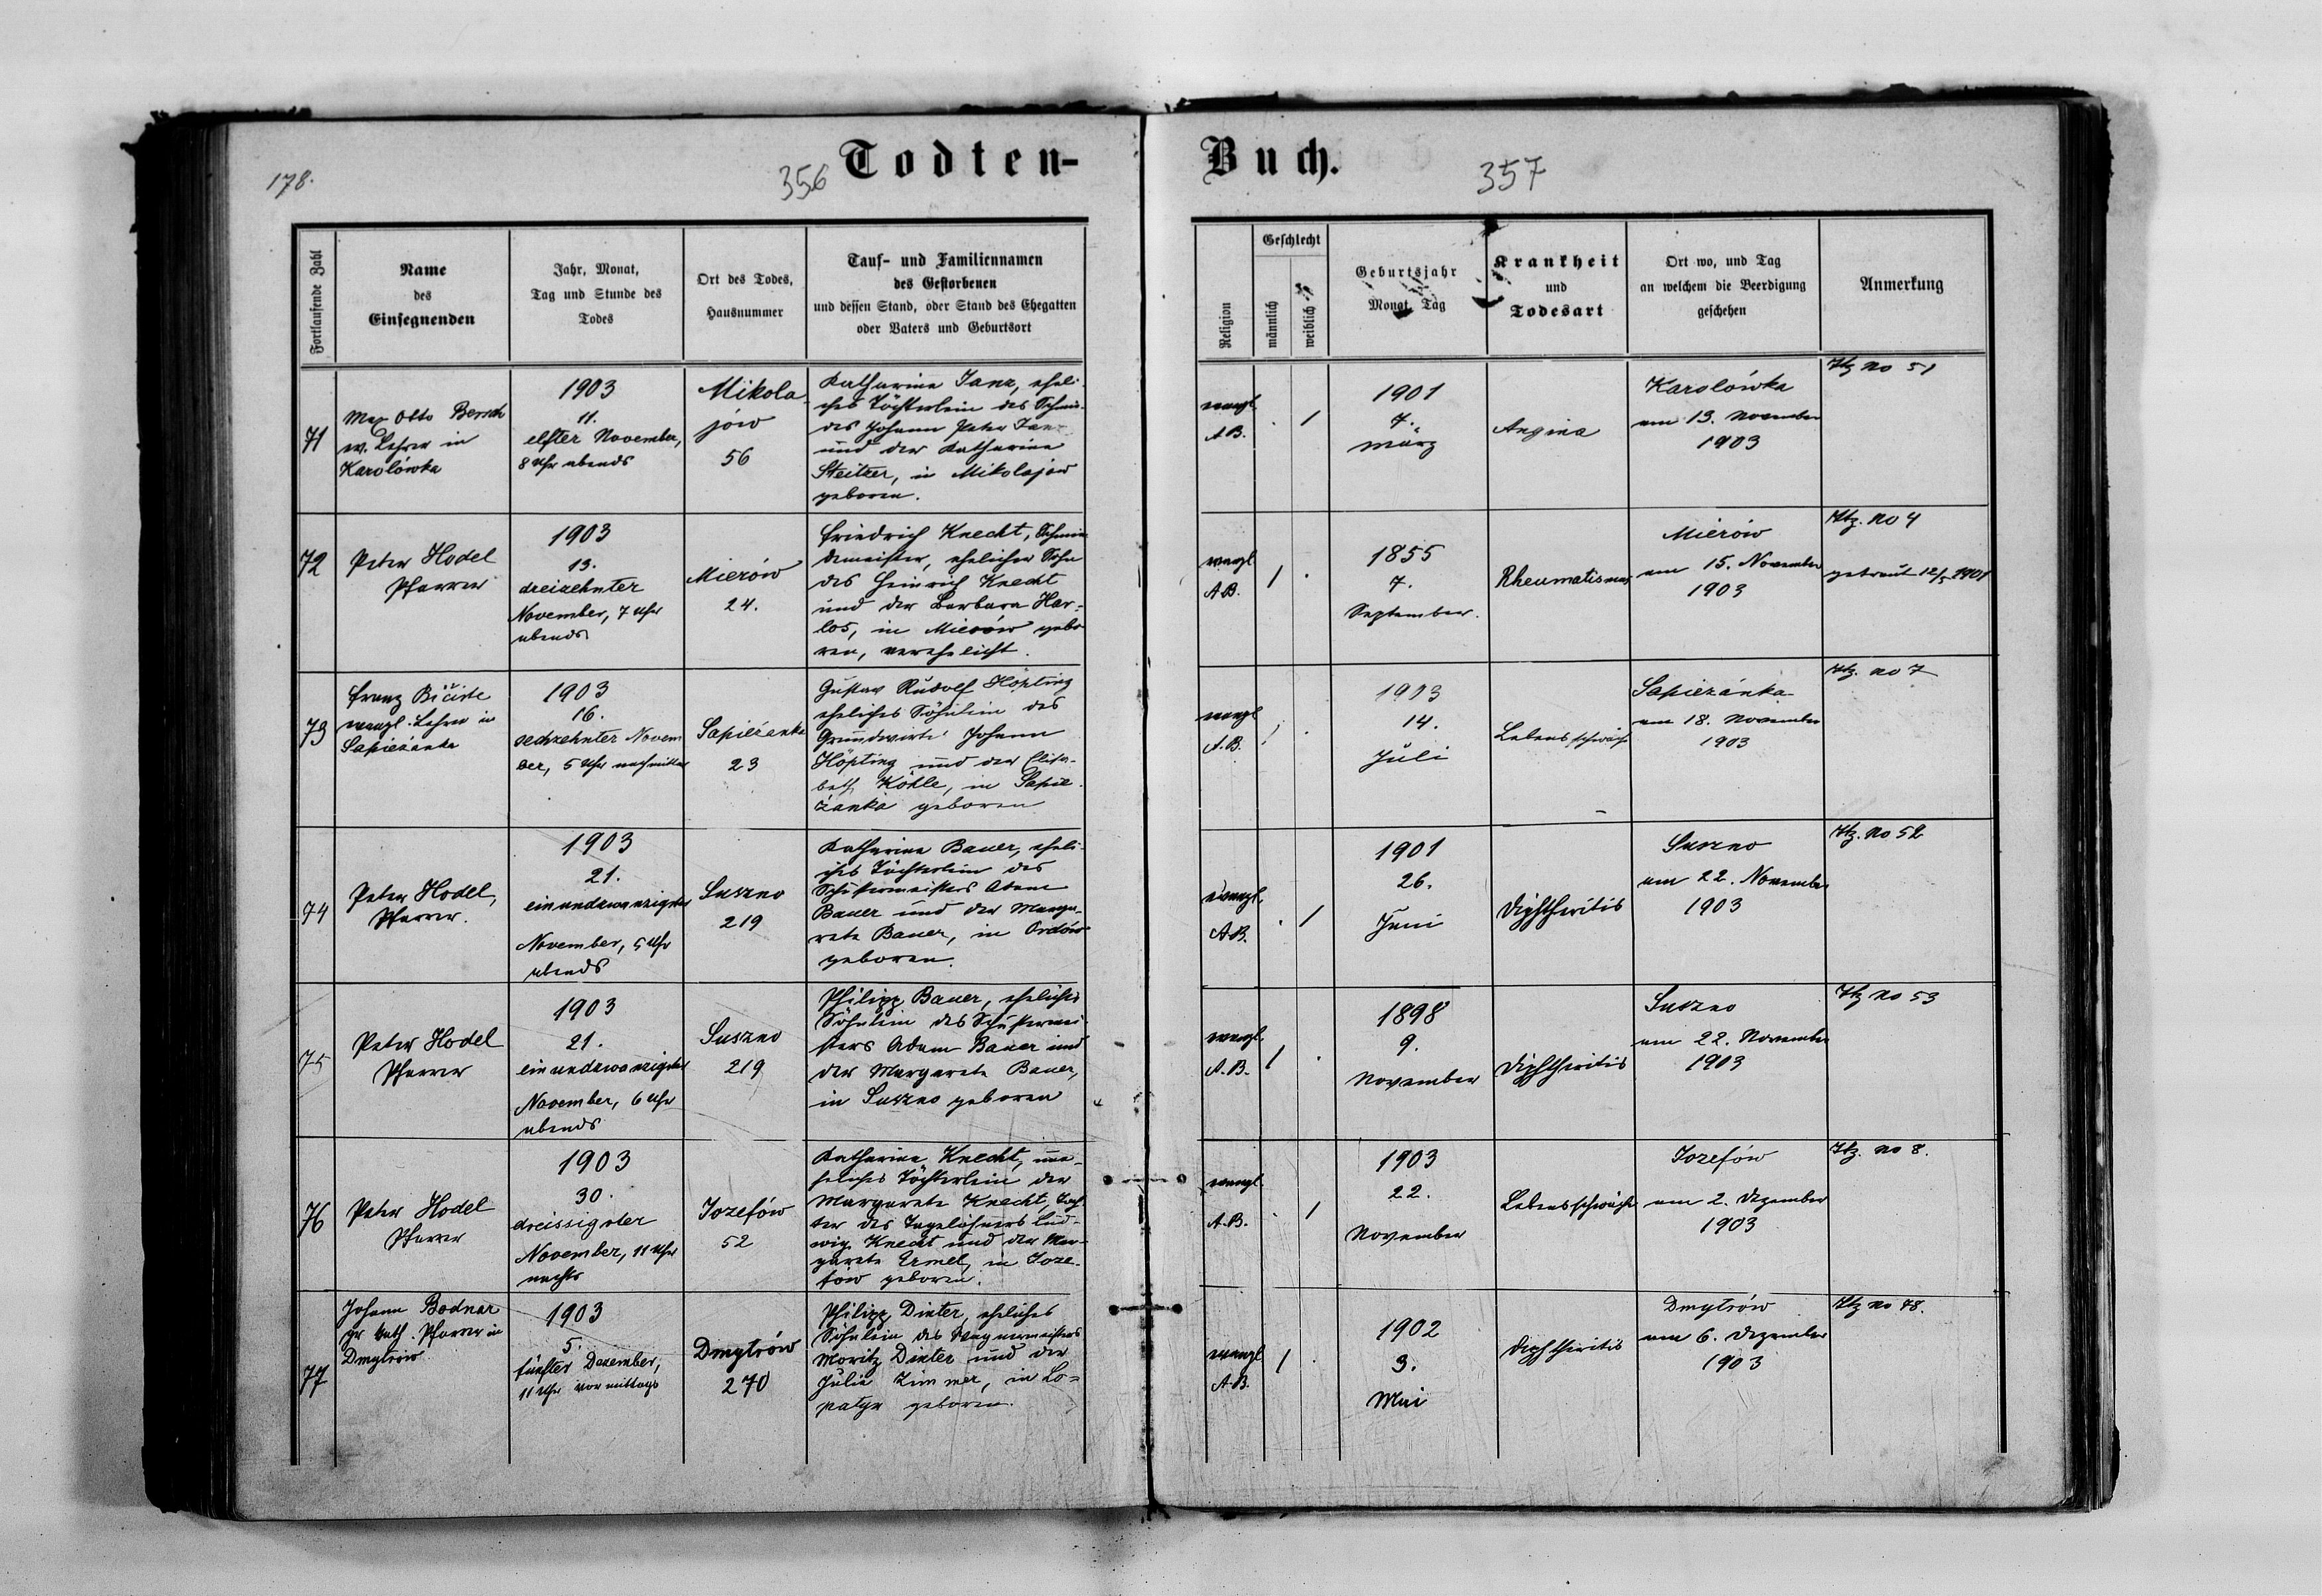 178.
356
Todten-
Fortlaufende Zahl
Name
des
Einsegnenden
Jahr, Monat,
Tag und Stunde des
Todes
Ort des Todes,
Hausnummer
Tauf- und Familiennamen
des Gestorbenen
und dessen Stand, oder Stand des Ehegatten
oder Vaters und Geburtsort
71
Max Otto Bersch
ev. Lehrer in
Karolówka
1903
11.
elfter November,
8 Uhr abends
Mikola-
jów
56
Katharina Janz, eheli-
ches Töchterlein des Schmie-
des Johann Peter Janz
und der Katharina
Steitzer, in Mikolajow
geboren.
72
Peter Hodel
Pfarrer
1903
13.
dreizehnter
November, 7 Uhr
abends
Mierów
24.
Friedrich Knecht, Schmie-
demeister, ehelicher Sohn
des Heinrich Knecht
und der Barbara Har-
los, in Mierów gebo-
ren, verehelicht.
73
Franz
evangl. Lehrer in
Sapieżanka
1903
16.
sechzehnter Novem
ber, 5 Uhr nachmittag
Sapieżanka
23
Gustav Rudolf Höpting
eheliches Söhnlein des
Grundwirts Johann
Höpting und der Elisa-
beth Köhle, in Sapie-
żanka geboren
74
Peter Hodel,
Pfarrer.
1903
21.
einundzwanzigster
November, 5 Uhr
abends
Suszno
219
Katharina Bauer, eheli-
ches Töchterlein des
Schustermeisters Adam
Bauer und der Marga-
reta Bauer, in Ordów
geboren.
75
Peter Hodel
Pfarrer
1903
21.
einundzwanzigster
November, 6 Uhr
abends
Suszno
219
Philipp Bauer, eheliches
Söhnlein des Schustermei-
sters Adam Bauer und
der Margareta Bauer,
in Suszno geboren
76
Peter Hodel
Pfarrer
1903
30.
dreissigster
November, 11 Uhr
nachts
Jozefów
52
Katharina Knecht, une-
heliches Töchterlein der
Margareta Knecht, Toch-
ter des Tagelöhners Lud-
wig Knecht und der Mar-
gareta Ermel, in Joze-
fów geboren.
77
Johann Bodnar
gr. kath. Pfarrer in
Dmytrów
1903
5.
fünfter Dezember,
11 Uhr vormittags
Dmytrów
270
Philipp Dinter, eheliches
Söhnlein des Wagnermeisters
Moritz Dinter und der
Julia Zimmer, in Lo-
patyn geboren.
Buch.
357
Religion
Geschlecht
männlich
weiblich
Geburtsjahr
Monat, Tag
Krankheit
und
Todesart
Ort wo, und Tag
an welchem die Beerdigung
geschehen
Anmerkung
evangl.
A.B.
. 1
1901
7.
März
Angina
Karolówka
am 13. November
1903
Htz no 51
evangl
A.B.
1 .
1855
7.
September.
Rheumatismus
Mierów
am 15. November
1903
Htz. no 4
getraut 12/5 1901
evangl
A.B.
1 .
1903
14.
Juli
Lebensschwäche
Sapieżanka
am 18. November
1903
Htz. no 7
evangl.
A.B.
. 1
1901
26.
Juni
Diphtheritis
Suszno
am 22. November
1903
Htz. no 52
evangl.
A.B.
1 .
1898
9.
November
Diphtheritis
Suszno
am 22. November
1903
Htz no 53
evangl.
A.B.
. 1
1903
22.
November
Lebensschwäche
Jozefów
am 2. Dezember
1903
Htz. no 8.
evangl
A.B.
1 .
1902
3.
Mai
Diphtheritis
Dmytrów
am 6. Dezember
1903
Htz no 78.